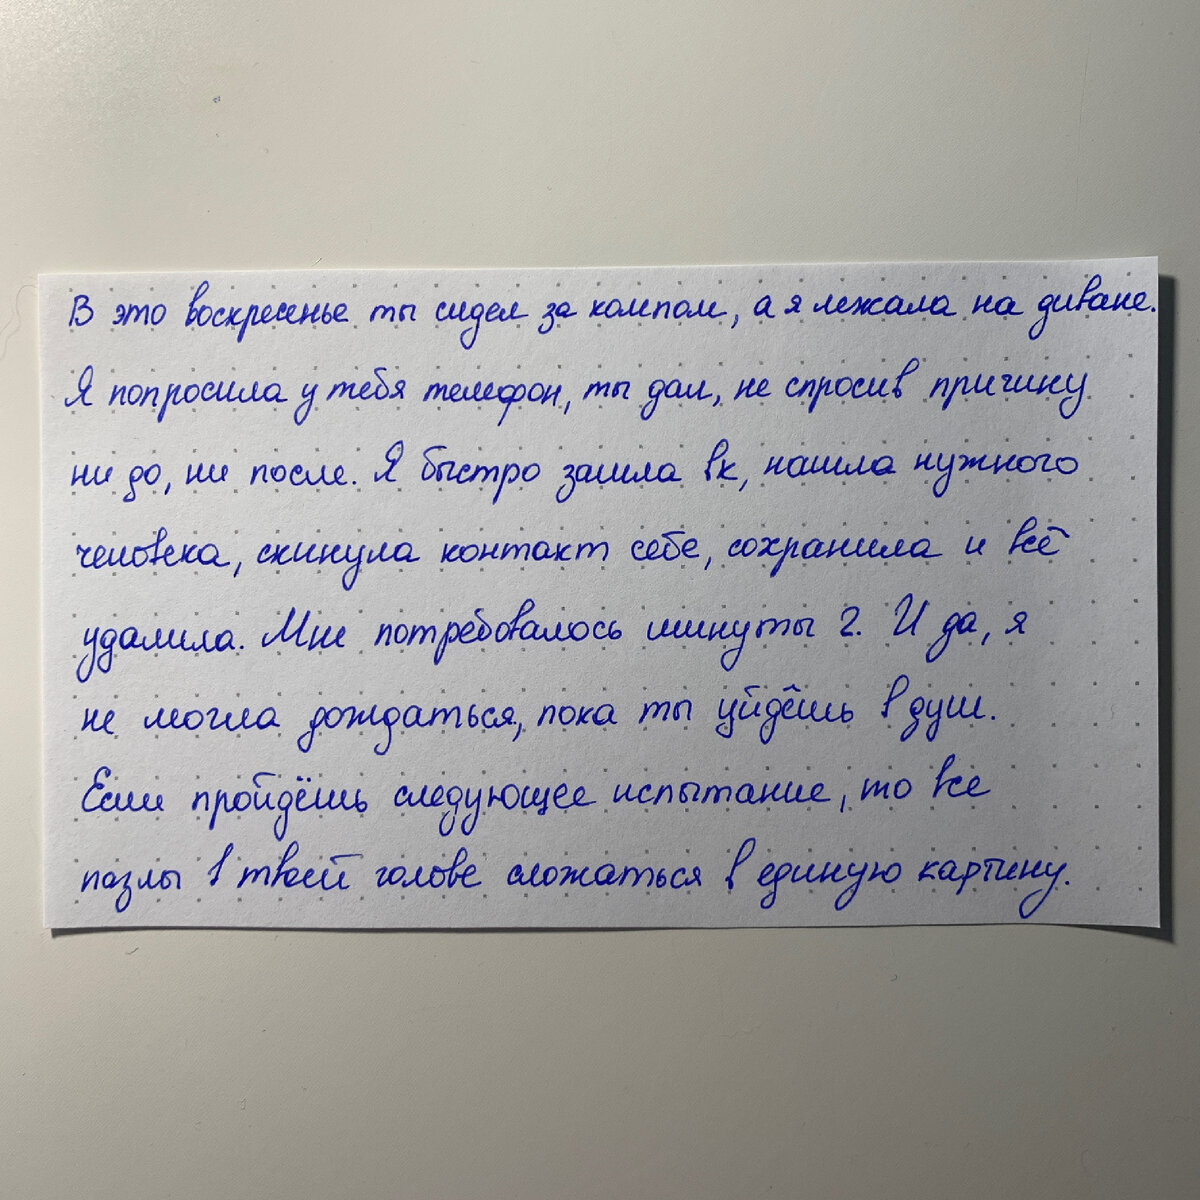 В это воскресенье ты сидел за компом, а я лежала на диване.
Я попросила у тебя телефон, ты дал, не спросив причину
ни до, ни после. Я быстро зашла вк, нашла нужного
человека, скинула контакт себе, сохранила и всё
удалила. Мне потребовалось минуты 2. И да, я
не могла дождаться, пока ты уйдёшь в душ.
Если пройдёшь следующее испытание, то все
пазлы в твоей голове сложаться в единую картину.